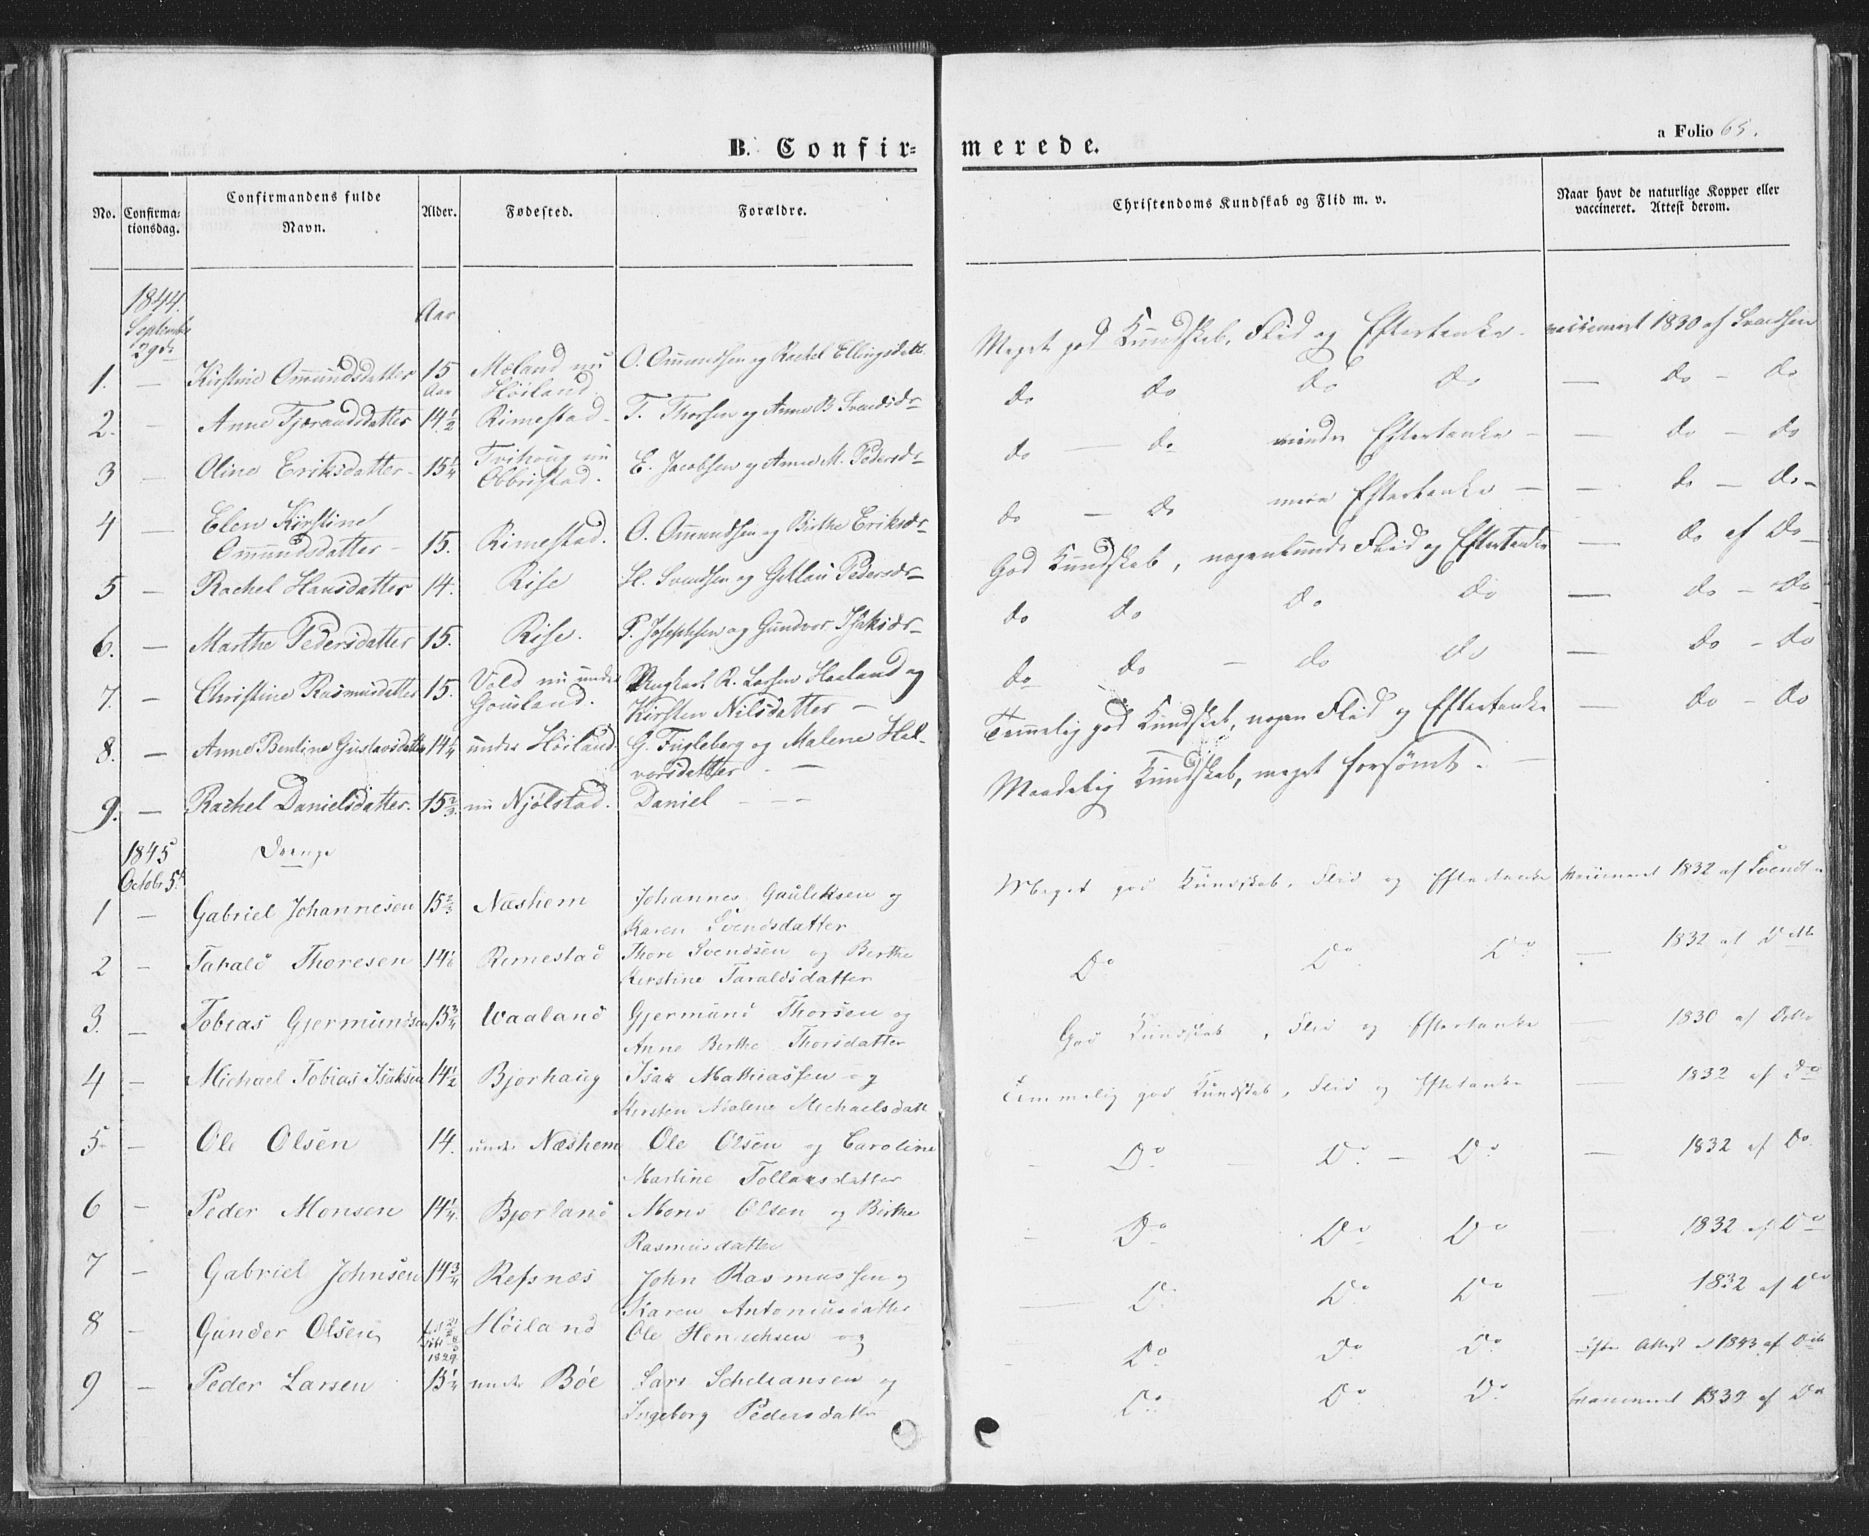 B. Confir-merede.
a Folio 65.
No. Confirma-tionsdag. Confirmandens fulde Navn. Alder. Fødested. Forældre. Christendoms Kundskab og Flid m. v. Naar havt de naturlige Kopper eller vaccineret. Attest derom.
1844. September 29de Aar
1. — Kirstine Omundsdatter 15 Aar Meland nu Höiland O. Omundsen og Rachel Ellingsdatt. Meget god Kundskab, Flid og Eftertanke vaccineret 1830 af Svendsen
2. — Anne Tjerandsdatter 14½ Rimestad T. Thorsen og Anne B. Svendsdr do do do do — do — do
3 — Oline Eriksdatter 15¼ Tvihoug nu Obbristad. E. Jacobsen og Anne M. Pedersdr do — do mindre Eftertanke — do — do
4 — Elen Kirstine Omundsdatter 15. Rimestad. O. Omundsen og Birthe Eriksdr do — do mere Eftertanke — — do — do
5 — Rachel Hansdatter 14. Rise H. Svendsen og Pedersdr God Kundskab, nogenlunde Flid og Eftertanke — do af do
6. — Marthe Pedersdatter 15. Rise. P. Josephsen og Gundvor Isaksdr do do do do — do — do
7. — Christine Rasmusdatter 15. Vold nu under Gouland. R. Larsen Haaland og Kirsten Nilsdatter — do do — do do — do — do
8. — Anne Bentine Gustavsdatter 14¼ under Höiland G. Fugleberg og Malene Halvorsdatter — Temmelig god Kundskab, nogen Flid og Eftertanke — do — do
9. — Rachel Danielsdatter. 15⅔ nu Njölstad. Daniel — — — Maadelig Kundskab, meget forsömt. —
1845 Octobr 5t Drenge
1 — Gabriel Johannesen 15⅔ Næshem Johannes Gauleksen og Karen Svendsdatter Meget god Kundskab, Flid og Eftertanke vaccineret 1832 af Svends
2 — Tarald Thoresen 14 Remestad Thore Svendsen og Berthe Kerstine Taraldsdatter Do Do Do — 1832 af Ditto
3. — Tobias Gjermundsen 15¾ Waaland Gjermund Thorsen og Anne Berthe Thorsdatter God Kundskab, Flid og Eftertanke — 1830 af Ditto
4 — Michael Tobias Isaksen 14½ Bjorhaug Isak Mathiassen og Kirsten Malene Michaelsdatt Temmelig god Kundskab, Flid og Eftertanke — 1832 af Do
5 — Ole Olsen 14. under Næshem Ole Olsen og Caroline Martine Tollaksdatter — Do — Do — Do — 1832 af Do
6 — Peder Monsen 14¼ Bjorland Mons Olsen og Birthe Rasmusdatter — Do Do Do — 1832 af Do
7 — Gabriel Johnsen 14¾ Refsnes John Rasmussen og Karen Antoniusdatter — Do Do Do — 1832 af Do
8 — Gunder Olsen 1829 Höiland Ole Henrichsen og Do Do Do Attest 1843 af Do
9 — Peder Larsen 15¼ under Böe Lars Scheliansen og Ingeborg Pedersdatter Do Do Do vaccineret 1832 af Do